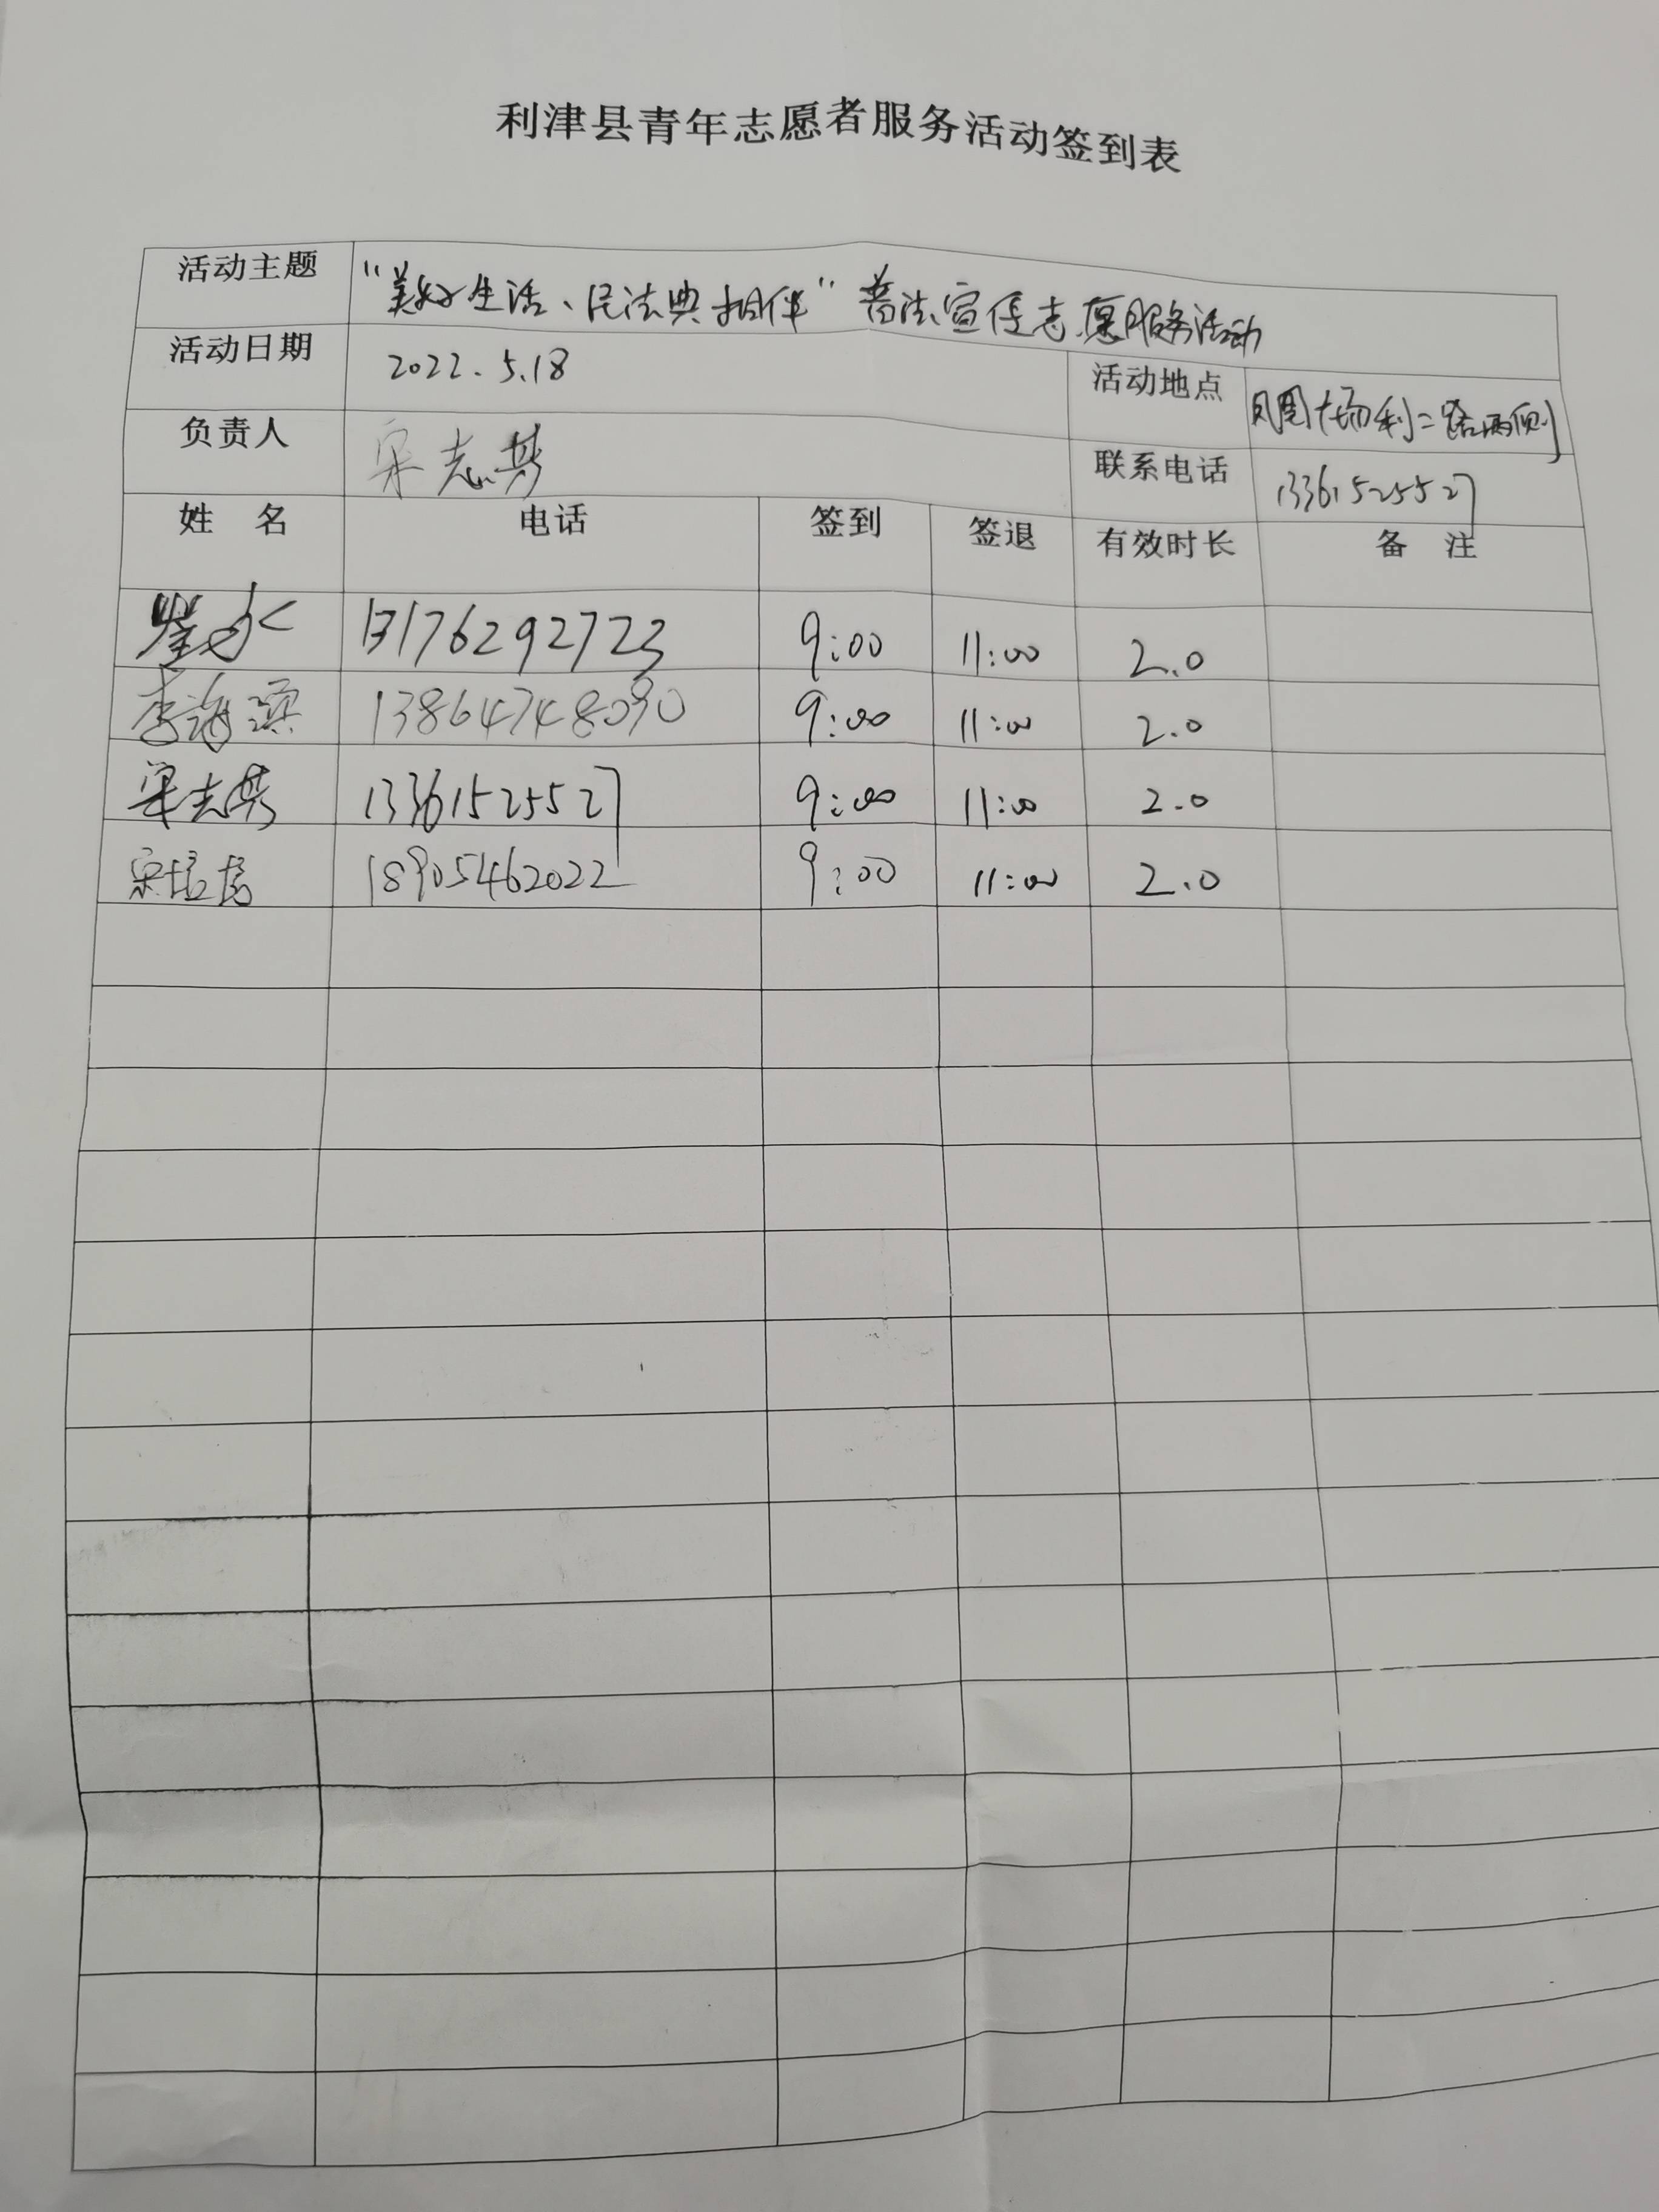 利津县青年志愿者服务活动签到表
活动主题 "美好生活、民法典相伴"普法宣传志愿服务活动
活动日期 2022.5.18 活动地点 凤凰广场利二路两侧
负责人 宋志芬 联系电话 13361525527
姓 名 电话 签到 签退 有效时长 备 注
13176292723 9:00 11:00 2.0
李海滨 13864748090 9:00 11:00 2.0
宋志芬 13361525527 9:00 11:00 2.0
宋培培 18905462022 9:00 11:00 2.0